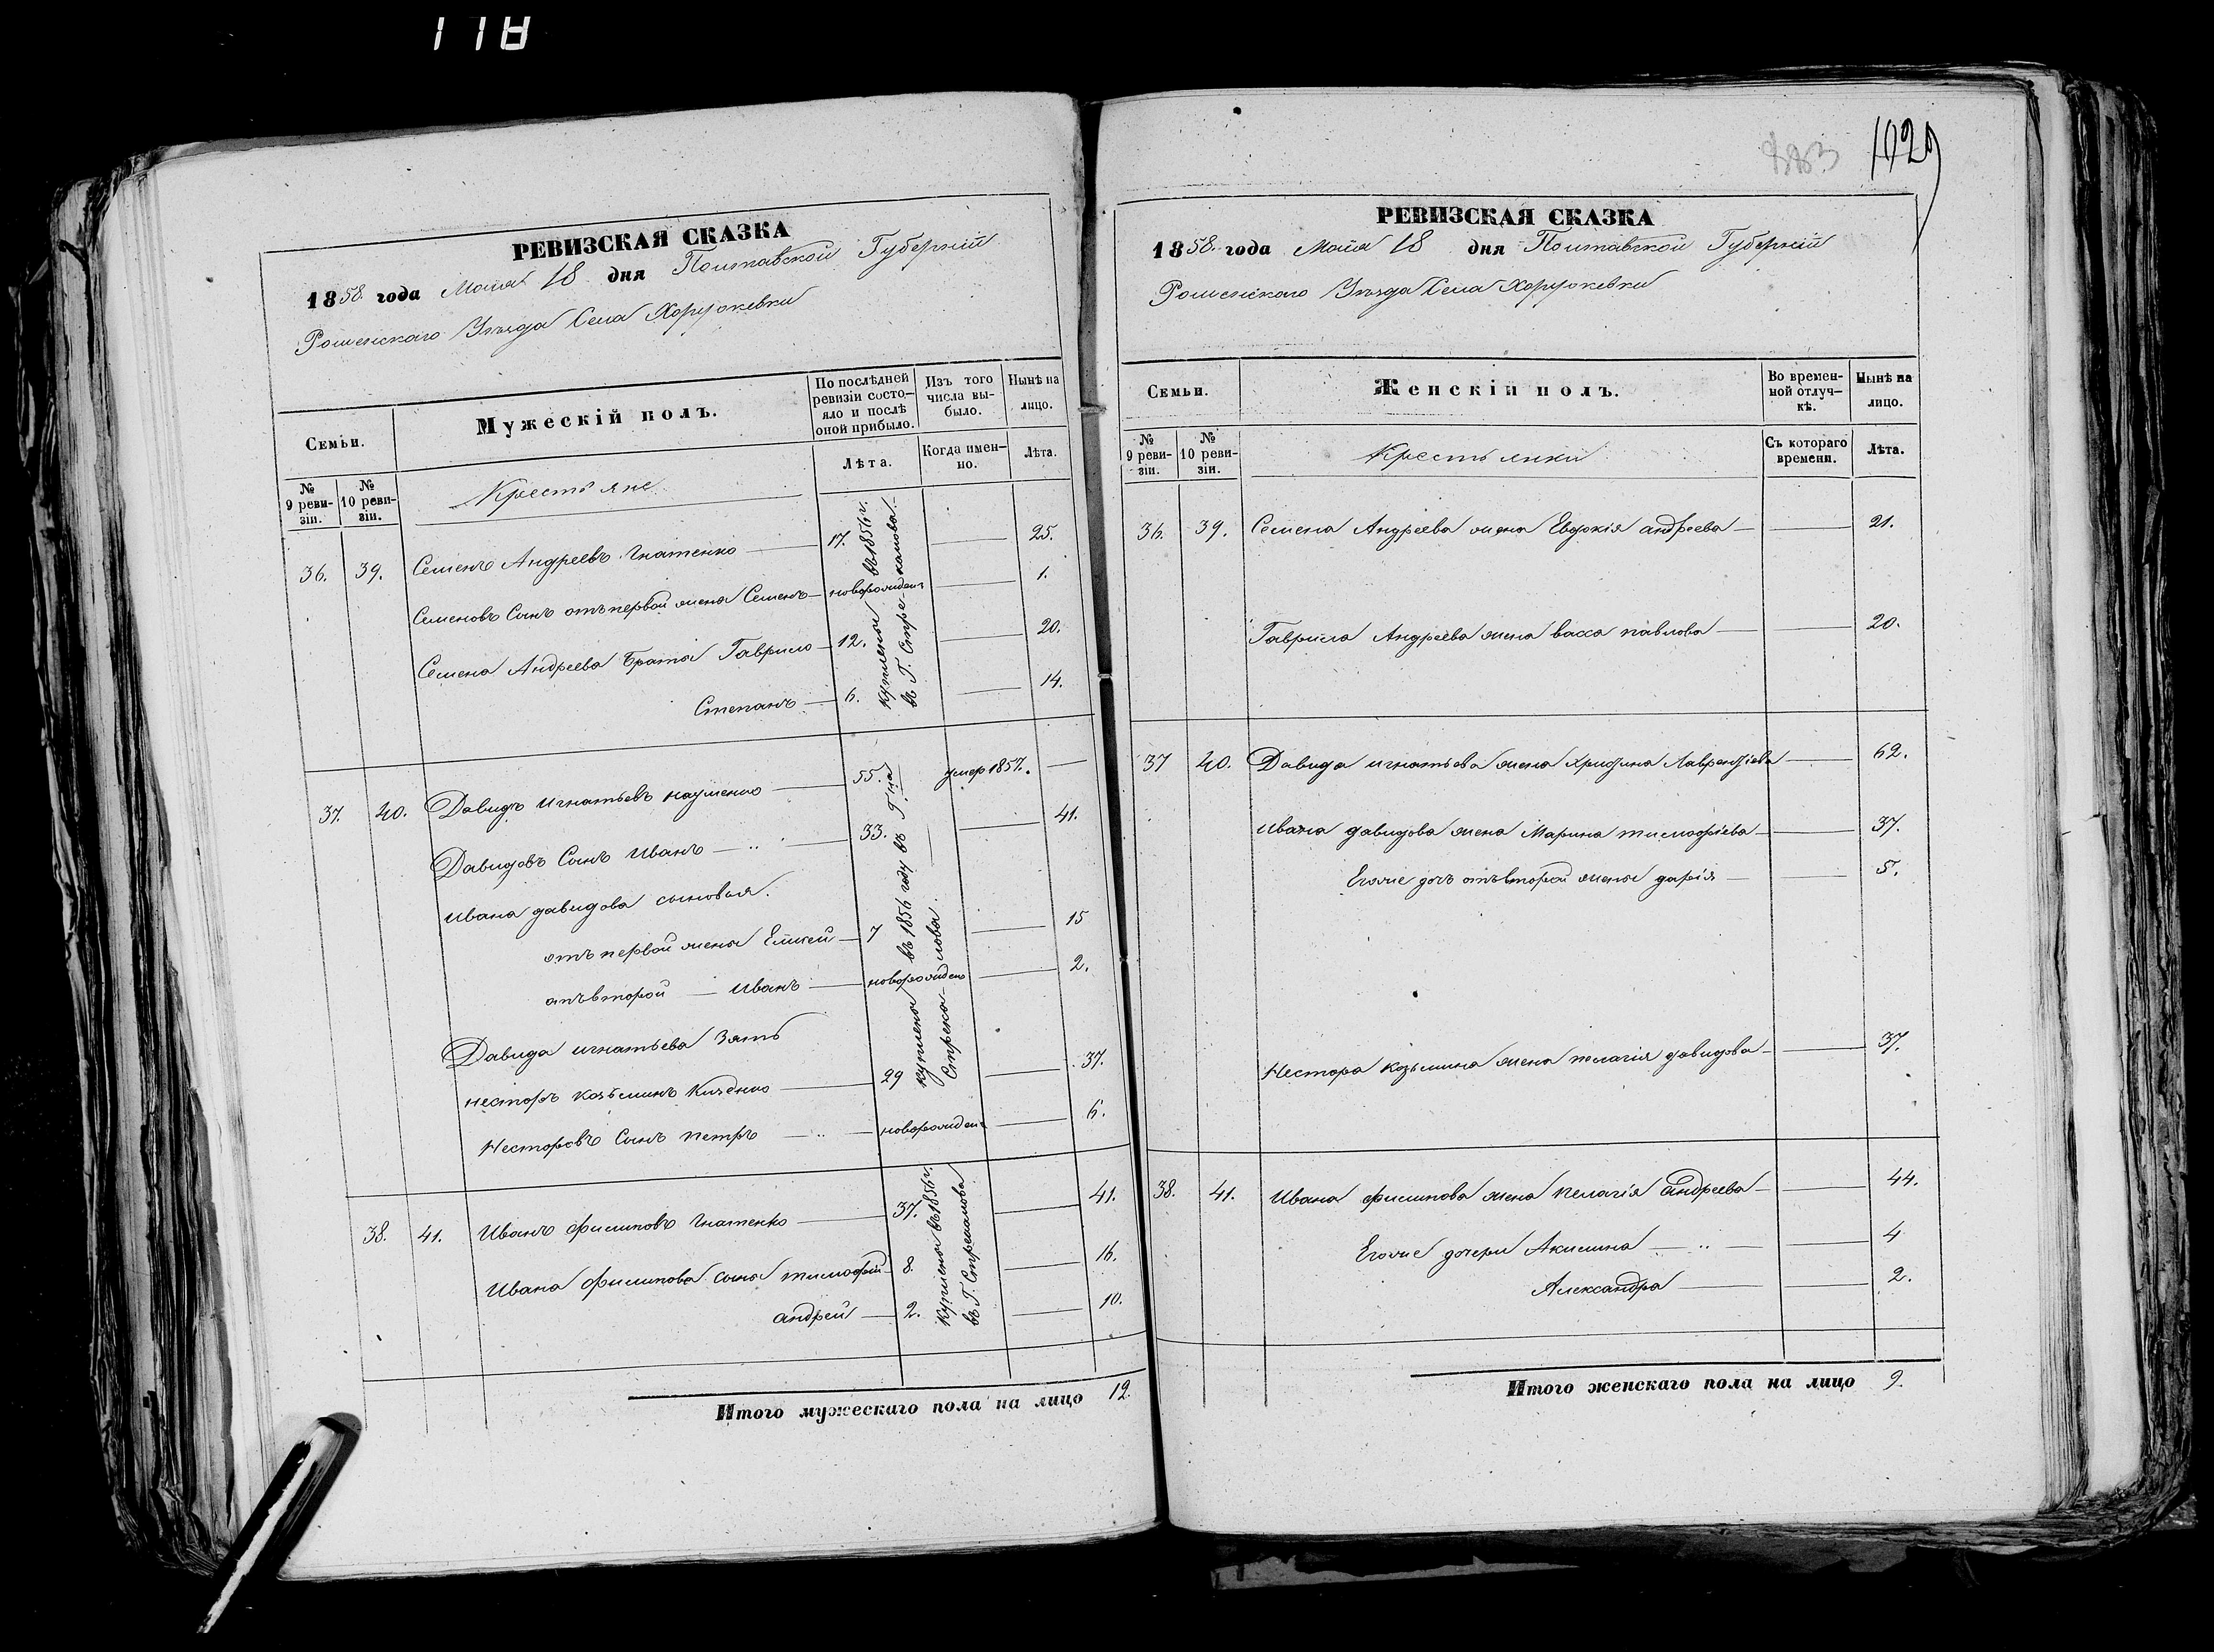 118
РЕВИЗСКАЯ СКАЗКА
1858 года Мая 18 дня Полтавской Губерніи
Роменскаго Уѣзда Села Хоружевки
Семьи.
Мужескій полъ.
По послѣдней ревизіи состо-яло и послѣ оной прибыло.
Изъ того числа вы-было.
Нынѣ на лицо.
№ 9 реви-зіи.
№ 10 реви-зіи.
Крестьяне
Лѣта.
Когда имен-но.
Лѣта.
36. 39. Семенъ Андреевъ Гнатенко 17. 25.
Семеновъ Сынъ отъ первой жены Семенъ новорожденъ 1.
Семена Андреева Брата Гаврило 12. 20.
Степанъ 6. 14.
куплены въ 1856 г.
въ Г. Стремоухова
37. 40. Давидъ Игнатьевъ Науменко 55. умер 1857.
Давидовъ Сынъ Иванъ — „ — 33. 41.
Ивана давидова сыновья.
отъ первой жены Елисей 7 15
отъ второй — Иванъ новорожденъ 2.
Давида игнатьева Зять
Несторъ козьминъ 29 37.
Несторовъ Сынъ петръ — „ — новорожденъ 6.
куплены въ 1856 году въ Г.на
38. 41. Иванъ филиповъ Гнатенко 37. 41.
Ивана филипова сыны тимофей 8. 16.
андрей 2. 10.
куплены въ 1856 г.
въ Г. Стремоухова
Итого мужескаго пола на лицо 12.
883 1029
РЕВИЗСКАЯ СКАЗКА
1858 года Мая 18 дня Полтавской Губерніи
Роменскаго Уѣзда Села Хоружевки
Семьи.
Женскій полъ.
Во времен-ной отлуч-кѣ.
Нынѣ на лицо.
№ 9 реви-зіи.
№ 10 реви-зіи.
Крестьянки
Съ котораго времени.
Лѣта.
36. 39. Семена Андреева жена Евдокія андреева 21.
Гаврила Андреева жена васса павлова 20.
37 40. Давида игнатьева жена Христина Лаврентіева 62.
Ивана давидова жена Марина тимофіева 37.
Егоже дочь отъ второй жены дарія 5.
Нестора козьмина жена пелагія давидова 37.
38. 41. Ивана филипова жена пелагія андреева 44.
Егоже дочери Акилина — „ — 4
Александра 2.
Итого женскаго пола на лицо 9.